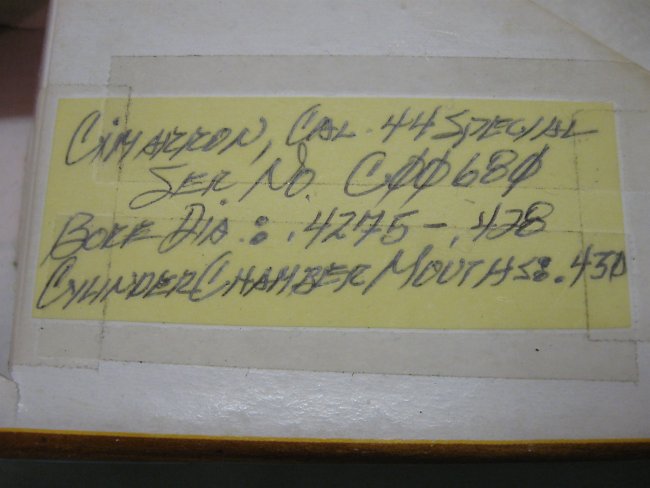 CIMARRON, CAL .44 SPECIAL
SER. NO. CØØ68Ø
BORE DIA.: .4275-.428
CYLINDER CHAMBER MOUTHS: .430